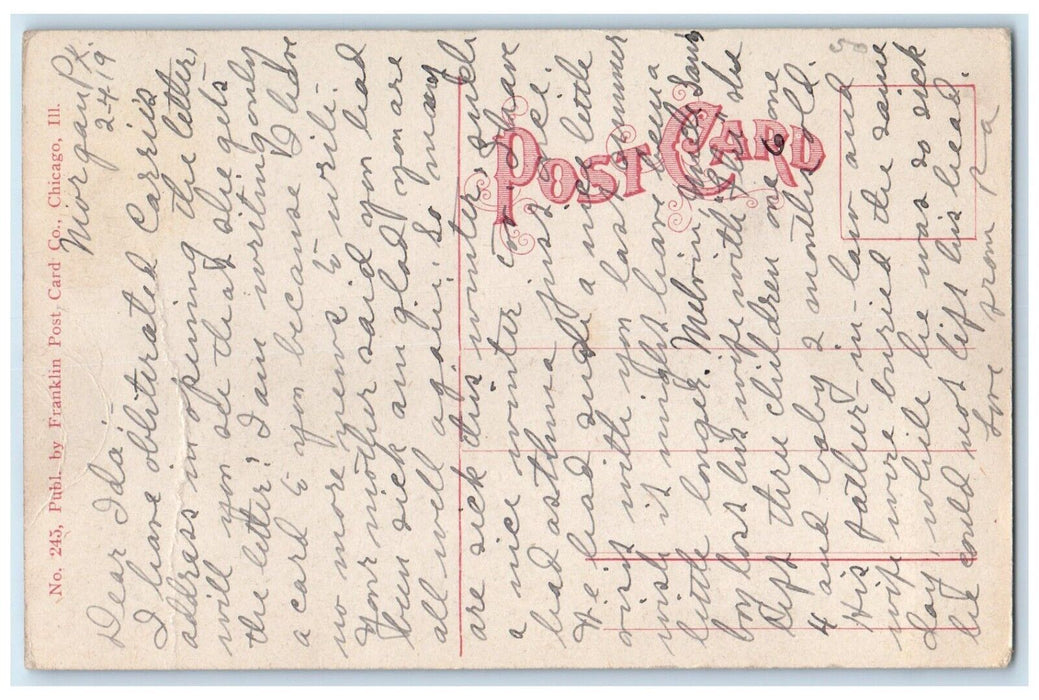 No. 245, Publ. by Franklin Post Card Co., Chicago, Ill.
POST CARD
Morgan Pk.
2-4-19
Dear Ida
I have obliterated Carrie's
address in opening the letter,
will you see that she gets
the letter? I am writing only
a card to you because I have
no more news to write.
Your mother said you had
been sick am glad you are
all well again. So many
are sick this winter, such
a nice winter too. I have
bad asthma just
We had such a nice little
visit with you last summer
wish it might have been a
little longer. Melvin
boy lost his wife with flu she
left three children one 6 one
4 and baby 2 months old.
His father-in-law and
wife were buried the same
day while he was so sick
he could not lift his head.
Love from Ra